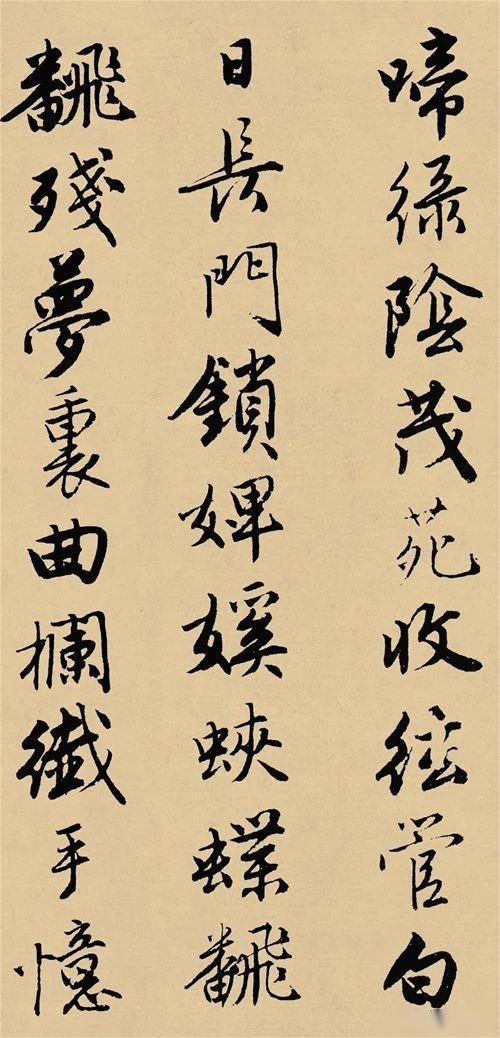 啼綠陰茂苑收絃管白
日長門鎖婢㜎蛺蝶飜
飜殘夢裏曲欄纖手憶